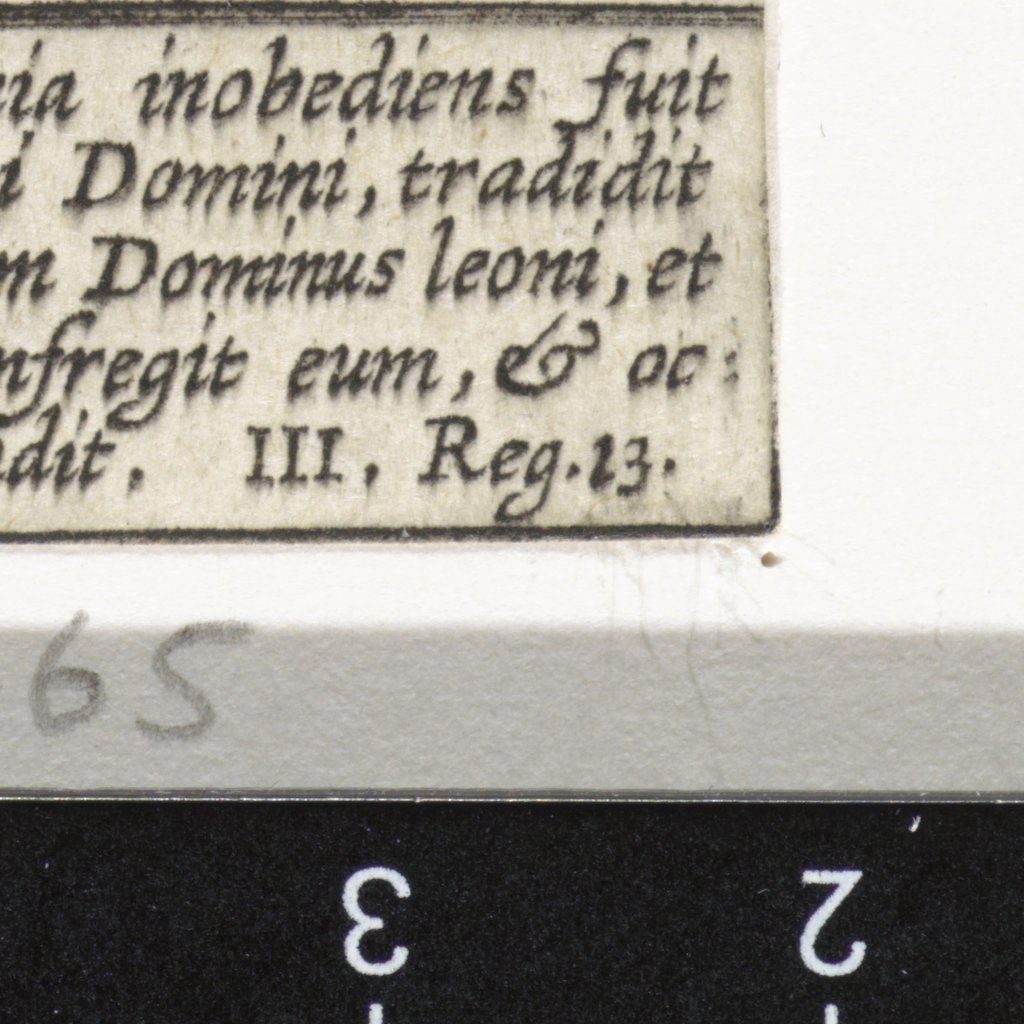 inobediens fuit
Domini, tradidit
Dominus leoni, et
eum, & oc:
III. Reg. 13.
65
3 2